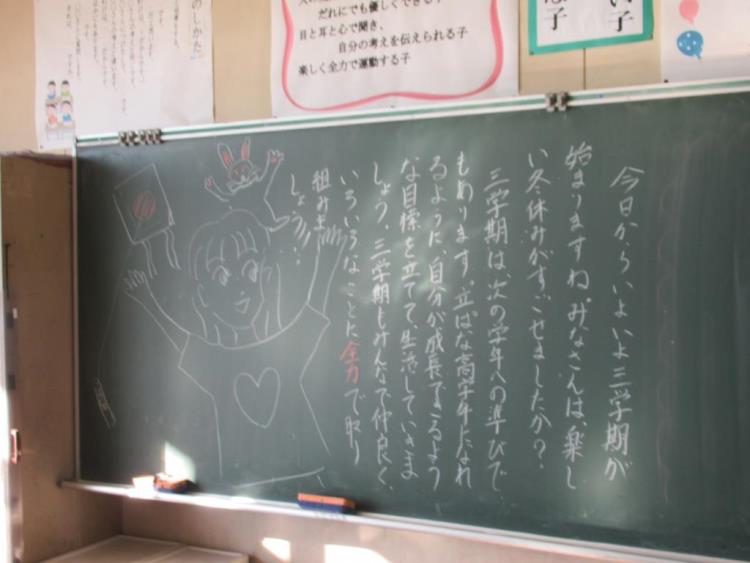 のしかた
だれにでも優しくできる子
目と耳と心で聞き、
自分の考えを伝えられる子
楽しく全力で運動する子
い子
子
今日からいよいよ三学期が
始まりますね。みなさんは、楽し
い冬休みがすごせましたか？
三学期は、次の学年への準びで
もあります。立ぱな高学年になれ
るように、自分が成長できるよう
な目標を立てて、生活していきま
しょう。三学期もみんなで仲良く、
いろいろなことに全力で取り
組みま
しょう。